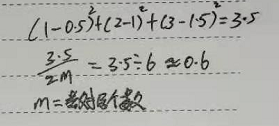 (1-0.5)²+(2-1)²+(3-1.5)²=3.5
3.5/2m = 3.5÷6 ≈0.6
m=个数